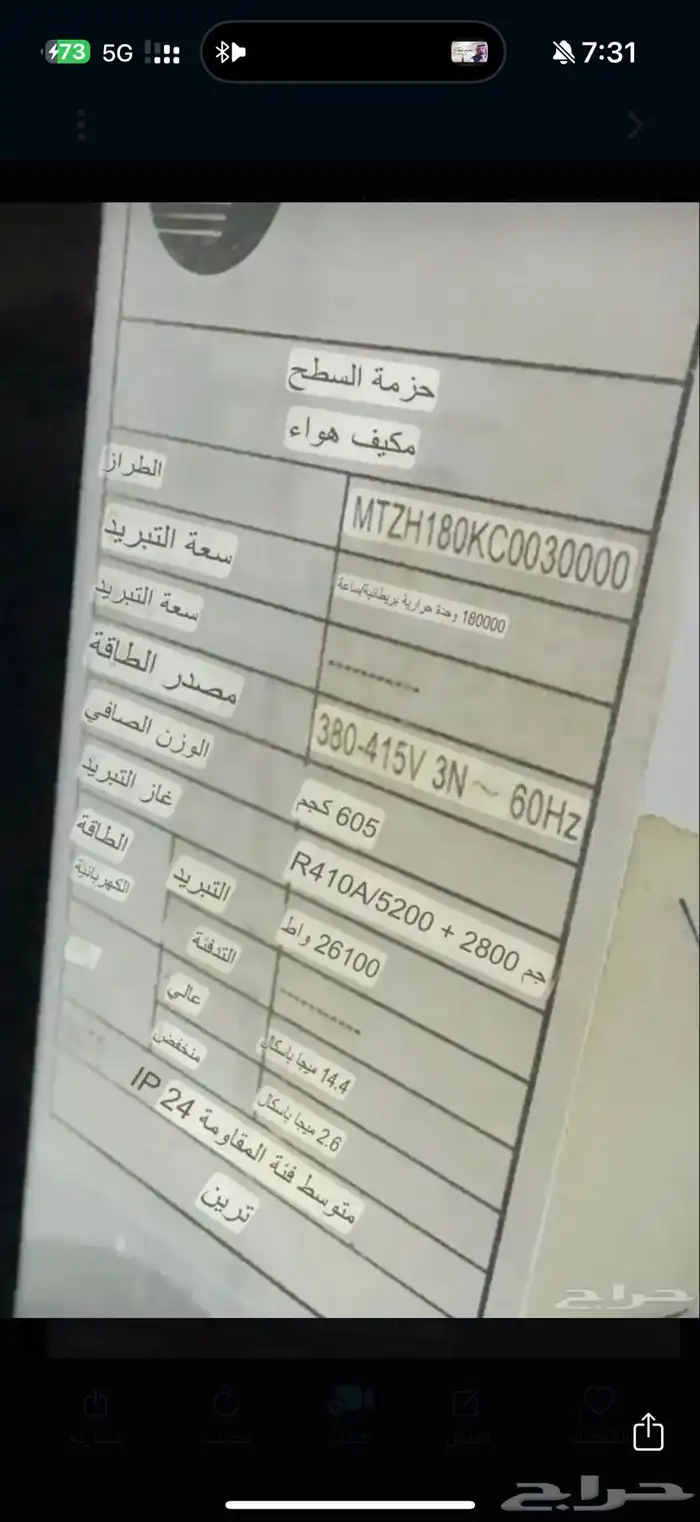 73 5G 7:31
حزمة السطح
مكيف هواء
الطراز MTZH180KC0030000
سعة التبريد 180000 وحدة حرارية بريطانية/ساعة
سعة التبريد ----------
مصدر الطاقة 380-415V 3N ~ 60Hz
الوزن الصافي 605 كجم
غاز التبريد R410A/5200 + 2800 جم
الطاقة الكهربائية
التبريد 26100 واط
التدفئة ----------
عالي 14.4 ميجا باسكال
منخفض 2.6 ميجا باسكال
متوسط فئة المقاومة IP 24
ترين
حراج
حراج